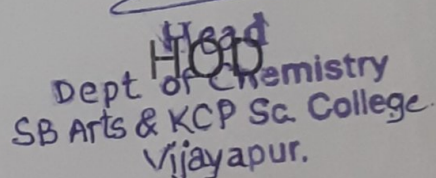 Head
HOD
Dept of Chemistry
SB Arts & KCP Sc. College.
Vijayapur.